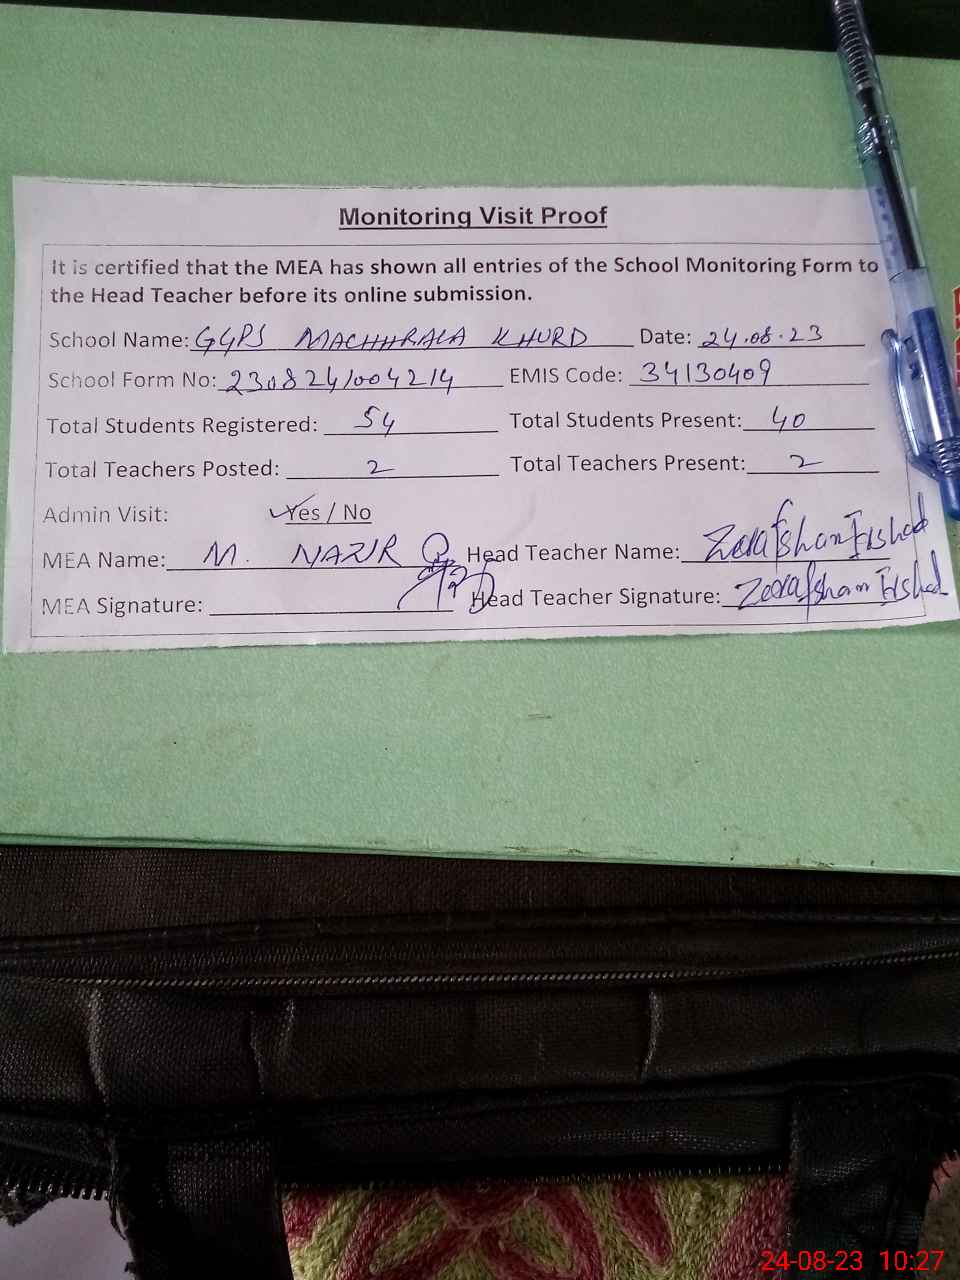 Monitoring Visit Proof
It is certified that the MEA has shown all entries of the School Monitoring Form to
the Head Teacher before its online submission.
School Name: GGPS MACHHRALA KHURD Date: 24.08.23
School Form No: 2308241004214 EMIS Code: 34130409
Total Students Registered: 54 Total Students Present: 40
Total Teachers Posted: 2 Total Teachers Present: 2
Admin Visit: Yes / No
MEA Name: M. NAZIR Head Teacher Name: Zarafshan Irshad
MEA Signature: Head Teacher Signature: Zarafshan Irshad
24-08-23 10:27